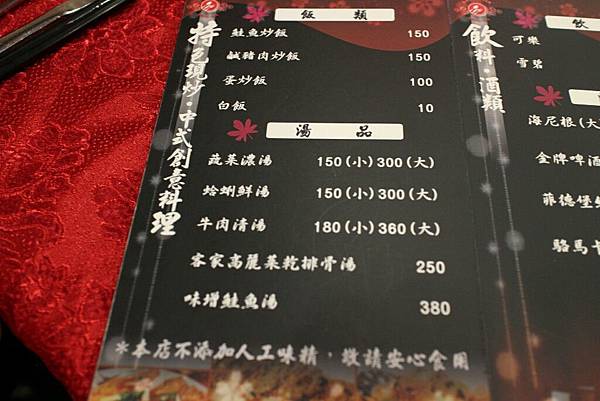 特色現炒·中式創意料理
飯 類
鮭魚炒飯 150
鹹豬肉炒飯 150
蛋炒飯 100
白飯 10
湯 品
蔬菜濃湯 150(小)300(大)
蛤蜊鮮湯 150(小)300(大)
牛肉清湯 180(小)360(大)
客家高麗菜乾排骨湯 250
味增鮭魚湯 380
*本店不添加人工味精，敬請安心食用
飲料·酒類
飲
可樂
雪碧
海尼根(大
金牌啤酒
菲德堡
駱馬卡